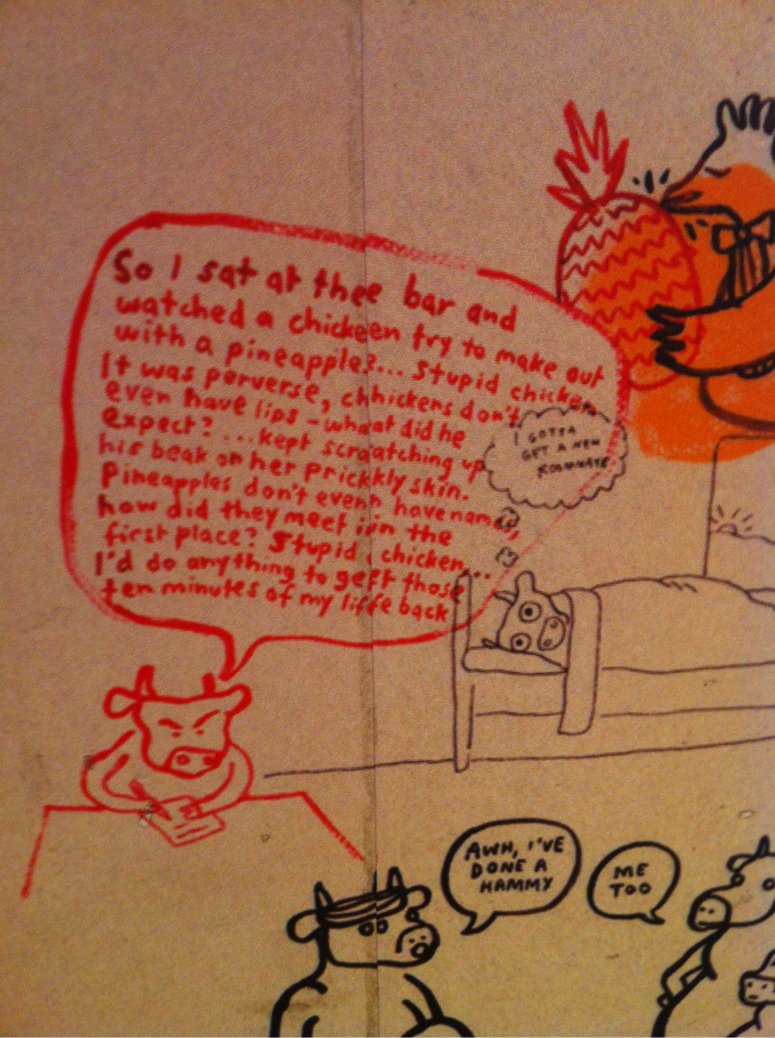 So I sat at thee bar and
watched a chickeen try to make out
with a pineapple?... Stupid chicken
It was perverse, chhickens don't
even have lips - whaat did he
expect? ...kept scraatching up
his beak on her prickkly skin.
Pineapples don't evenn have names,
how did they meet iin the
first place? Stupid chicken...
I'd do anything to geet those
ten minutes of my liffe back
I GOTTA
GET A NEW
ROOMMATE
AWH, I'VE
DONE A
HAMMY
ME
TOO